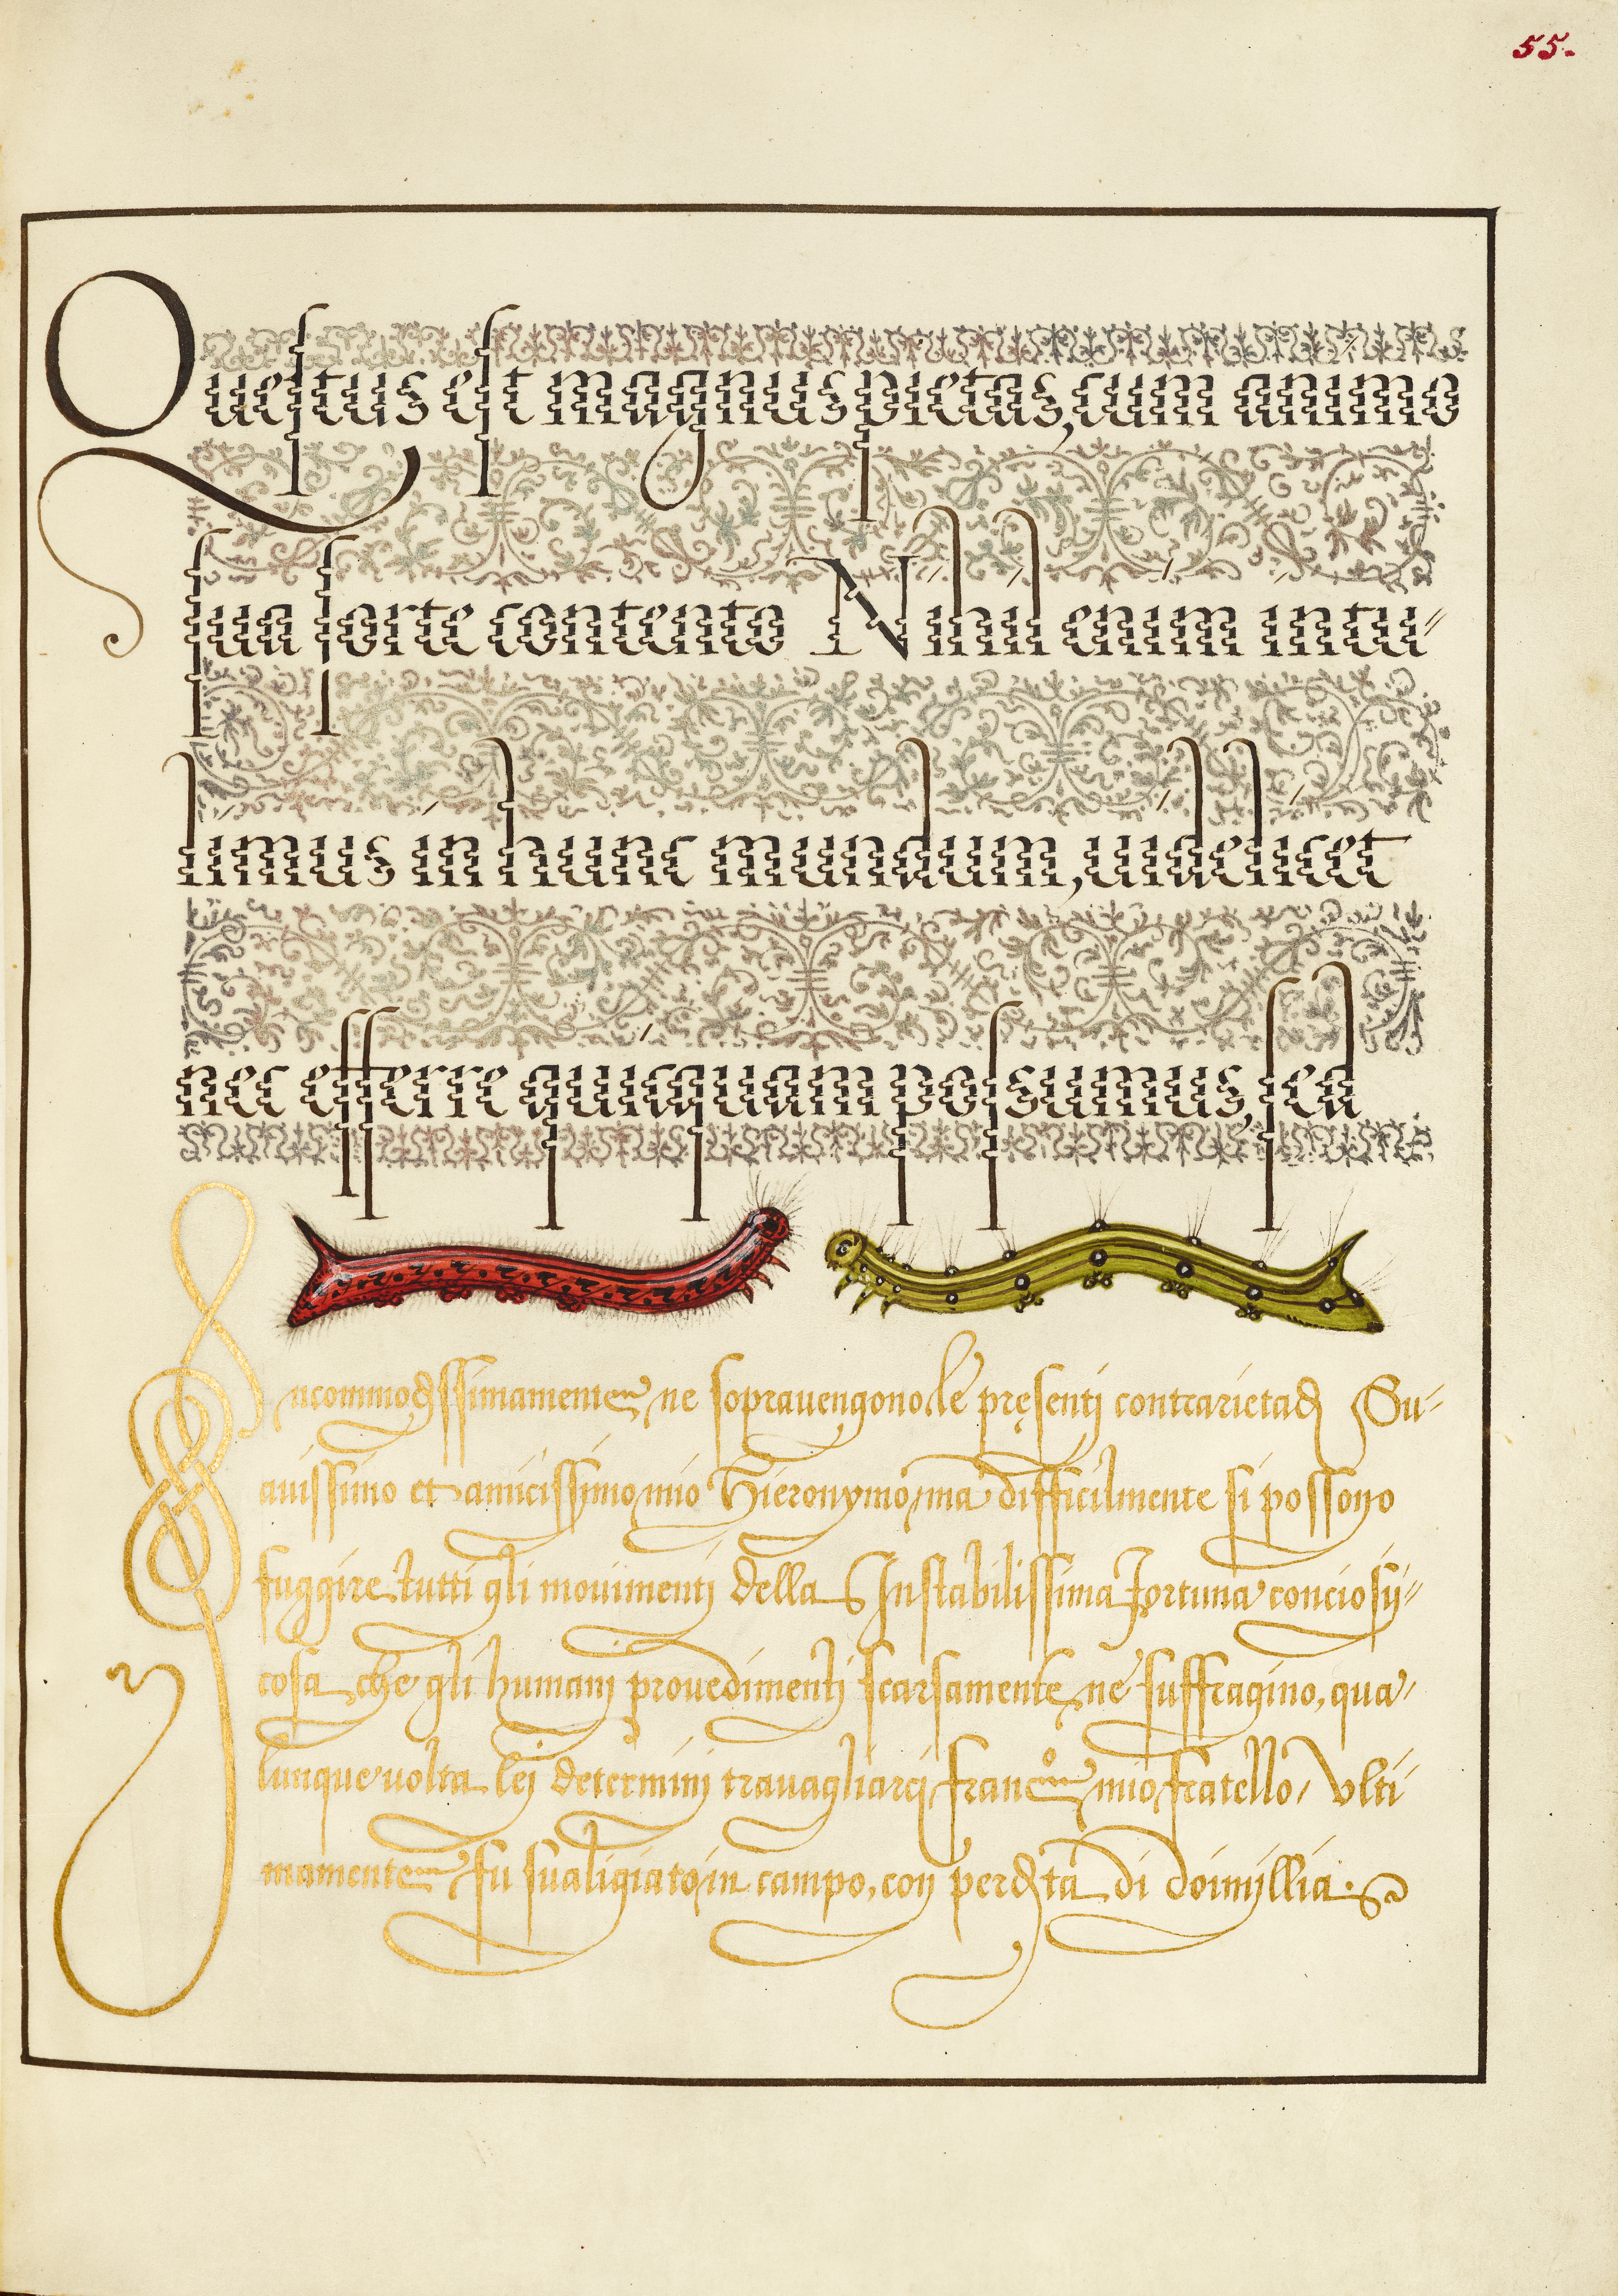 55.
Quęstus est magnus pietas, cum animo
sua sorte contento Nihil enim intu⸗
limus in hunc mundum, videlicet
nec efferre quicquam possumus, sed
Incommodissimamente ne sopravengono le pręsenti contrarietadi Su⸗
avissimo et amicissimo mio Hieronymo, ma difficilmente si possono
fuggire tutti gli movimenti della Instabilissima Fortuna conciosij⸗
cosa che gli humani provedimenti scarsamente ne suffragino, qua⸗
lunque volta lei determini travagliarci, Franc.º mio fratello, Vlti⸗
mamente fu svaligiato in campo, con perdita di doimillia.